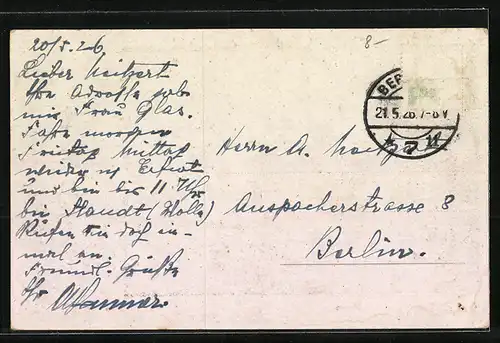 20/5.26.
8-
Lieber
Ihre Adresse gab
mir Frau Glas.
Fahre morgen
Freitag Mittag
wieder n. Erfurt
und bin bis 11 Uhr
bei Staudt (Wolle)
Rufen Sie doch ein-
mal an.
Freundl. Grüße
Ihr
BER
21.5.26.7-8V
Herrn A.
Anspacherstrasse 8
Berlin.